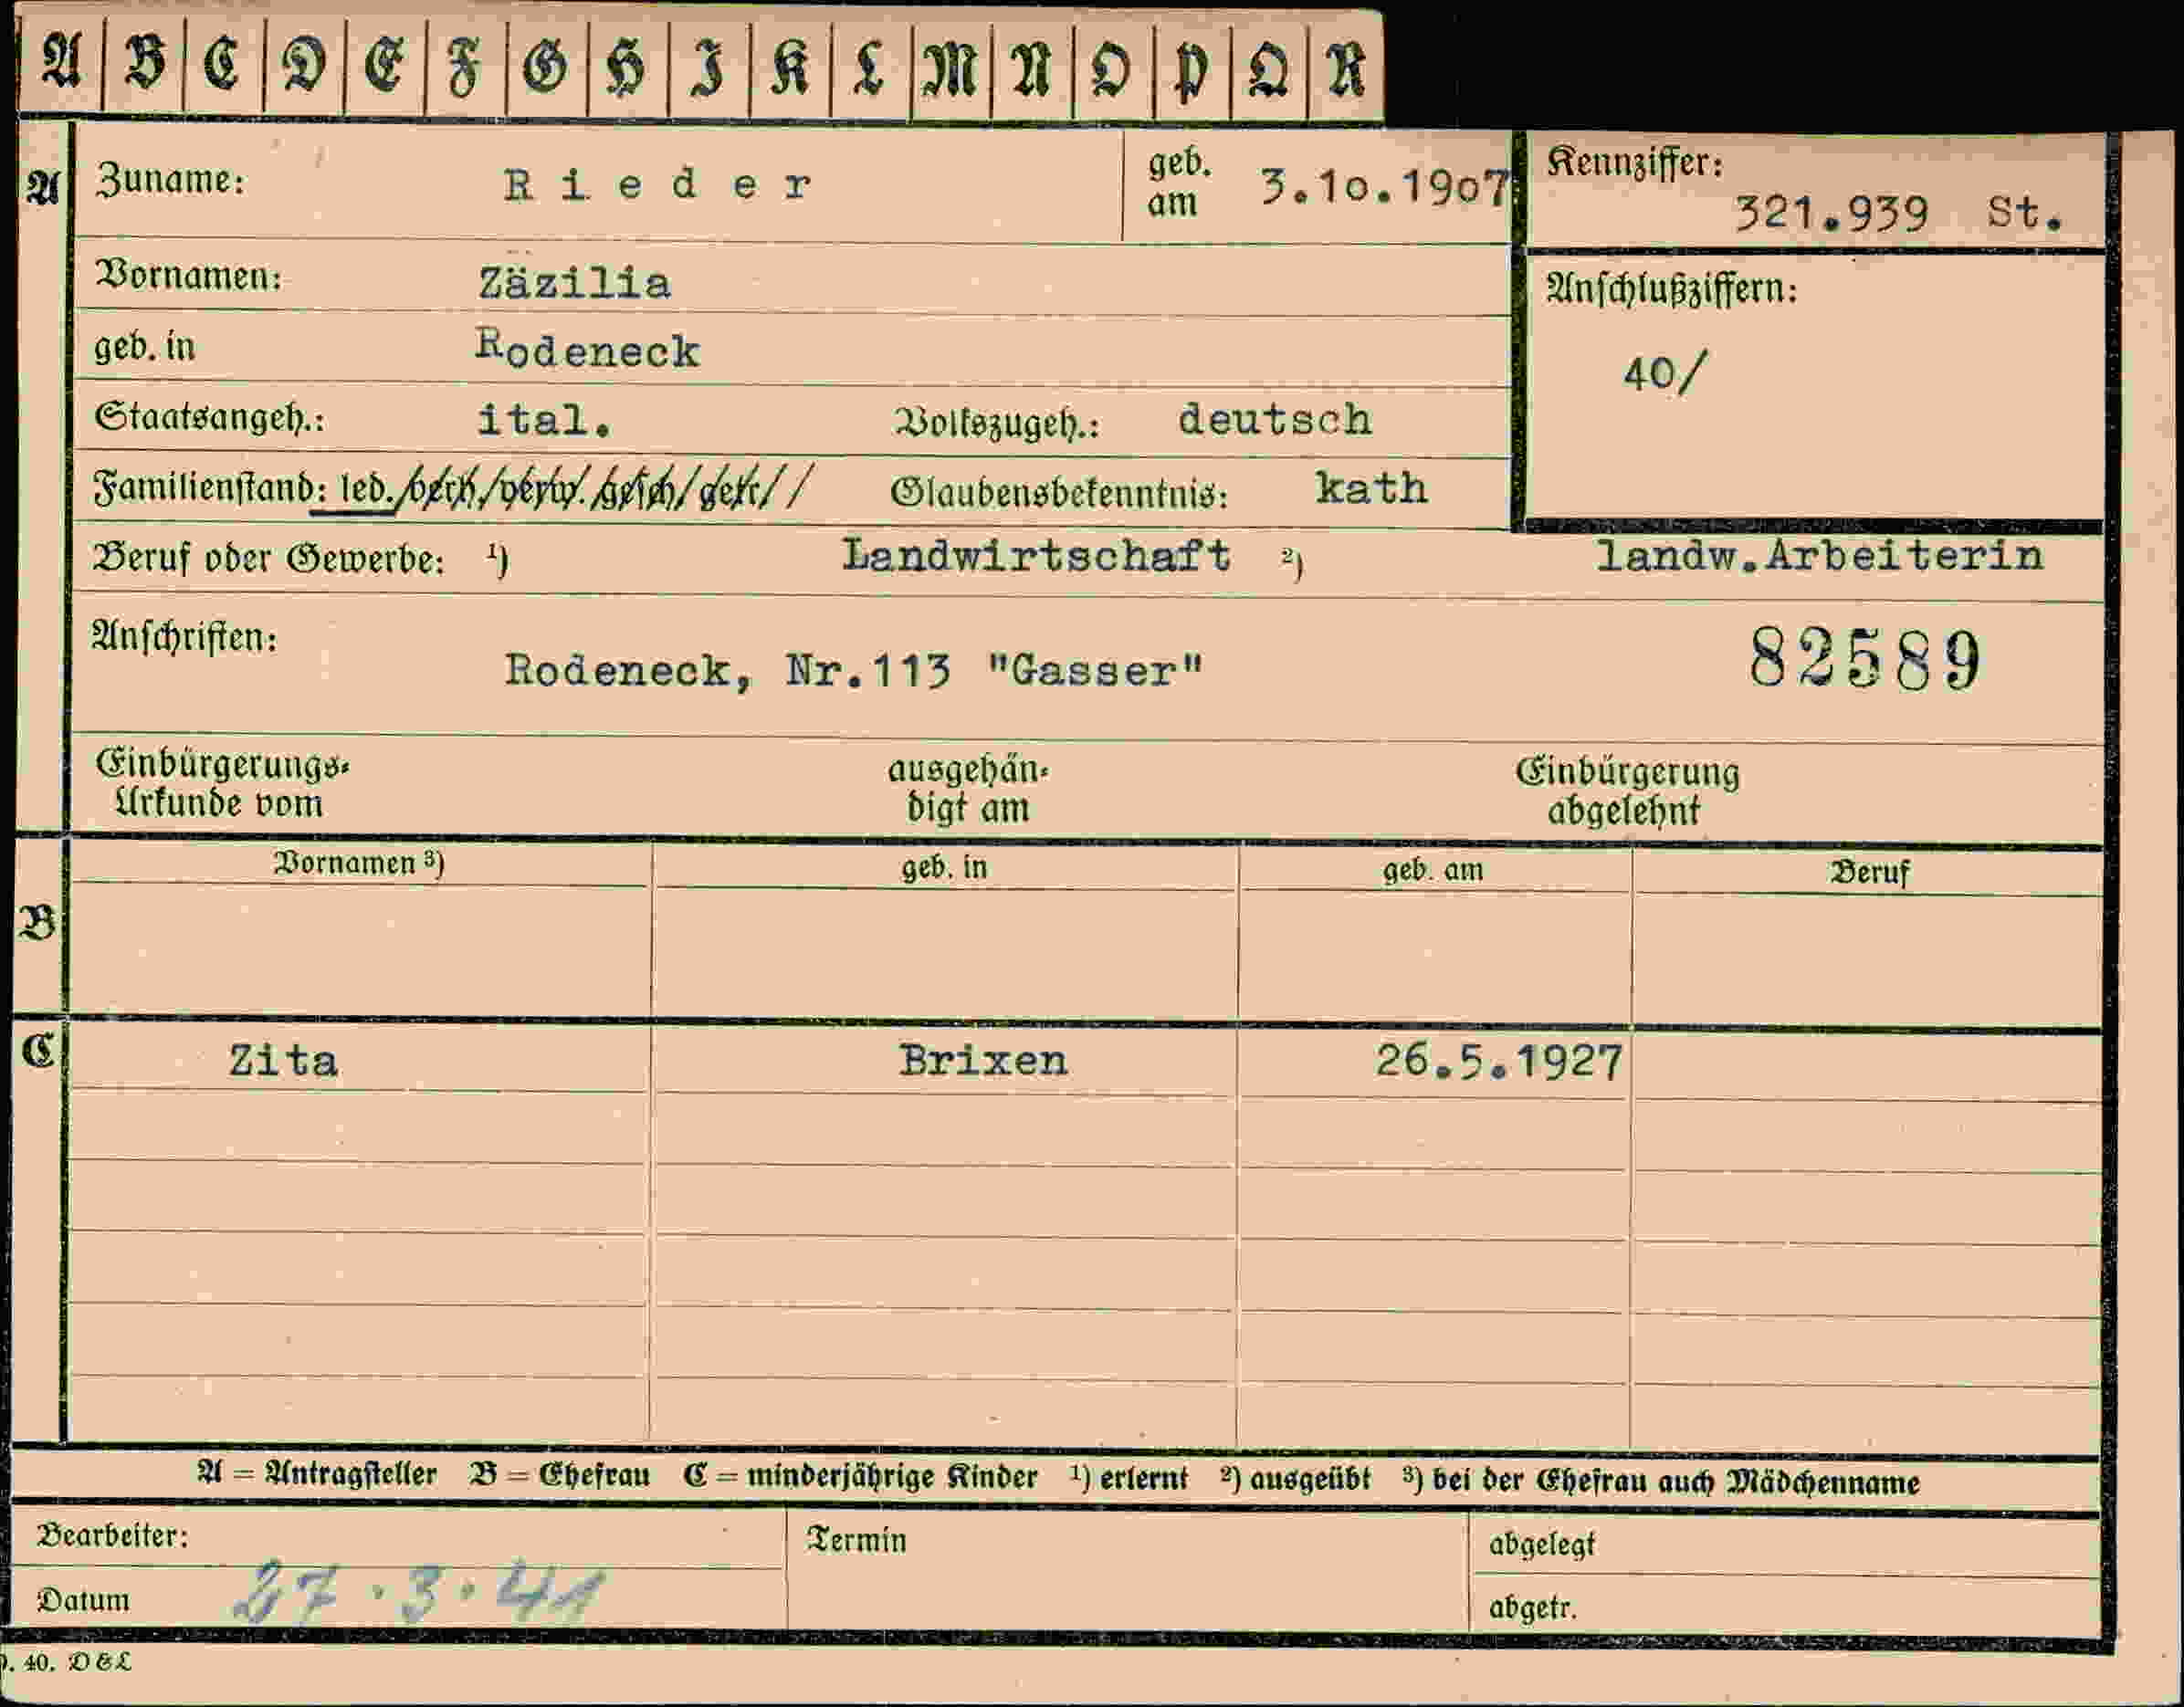 A B C D E F G H I K L M N O P Q R
A Zuname: Rieder geb. am 3.10.1907 Kennziffer: 321.939 St.
Vornamen: Zäzilia Anschlußziffern:
geb. in Rodeneck 40/
Staatsangeh.: ital. Volkszugeh.: deutsch
Familienstand: led./verh./verw./gesch/getr// Glaubensbekenntnis: kath
Beruf oder Gewerbe: ¹) Landwirtschaft ²) landw.Arbeiterin
Anschriften: Rodeneck, Nr.113 "Gasser" 82589
Einbürgerungs- ausgehän- Einbürgerung
Urkunde vom digt am abgelehnt
Vornamen ³) geb. in geb. am Beruf
B
C Zita Brixen 26.5.1927
A = Antragsteller B = Ehefrau C = minderjährige Kinder ¹) erlernt ²) ausgeübt ³) bei der Ehefrau auch Mädchenname
Bearbeiter: Termin abgelegt
Datum 27.3.41 abgetr.
40. D&L